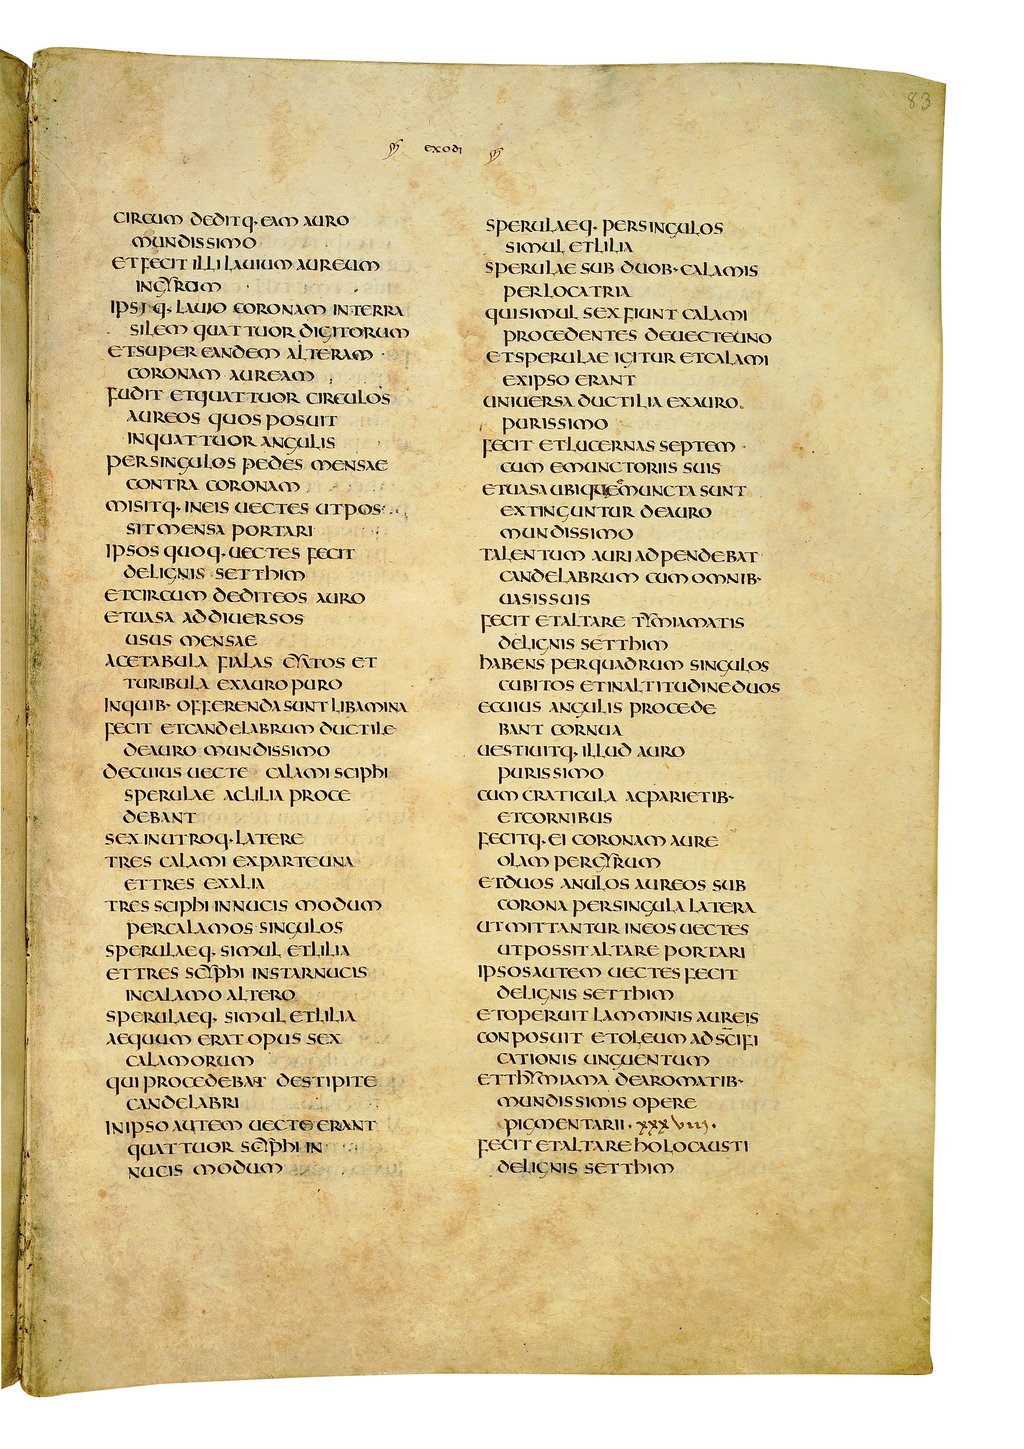 83
exodi
CIRCUM DEDITQ· EAM AURO
MUNDISSIMO
ET FECIT ILLI LAUIUM AUREUM
IN GYRUM
IPSIQ· LAUIO CORONAM INTERRA
SILEM QUATTUOR DIGITORUM
ET SUPER EANDEM ALTERAM
CORONAM AUREAM
FUDIT ET QUATTUOR CIRCULOS
AUREOS QUOS POSUIT
IN QUATTUOR ANGULIS
PER SINGULOS PEDES MENSAE
CONTRA CORONAM
MISITQ· IN EIS UECTES UT POS
SIT MENSA PORTARI
IPSOS QUOQ· UECTES FECIT
DE LIGNIS SETTHIM
ET CIRCUM DEDIT EOS AURO
ET UASA AD DIUERSOS
USUS MENSAE
ACETABULA FIALAS CYATOS ET
TURIBULA EX AURO PURO
IN QUIB· OFFERENDA SUNT LIBAMINA
FECIT ET CANDELABRUM DUCTILE
DE AURO MUNDISSIMO
DE CUIUS UECTE CALAMI SCIPHI
SPERULAE AC LILIA PROCE
DEBANT
SEX IN UTROQ· LATERE
TRES CALAMI EX PARTE UNA
ET TRES EX ALIA
TRES SCIPHI IN NUCIS MODUM
PER CALAMOS SINGULOS
SPERULAEQ· SIMUL ET LILIA
ET TRES SCYPHI INSTAR NUCIS
IN CALAMO ALTERO
SPERULAEQ· SIMUL ET LILIA
AEQUUM ERAT OPUS SEX
CALAMORUM
QUI PROCEDEBAT DE STIPITE
CANDELABRI
IN IPSO AUTEM UECTE ERANT
QUATTUOR SCYPHI IN
NUCIS MODUM
SPERULAEQ· PER SINGULOS
SIMUL ET LILIA
SPERULAE SUB DUOB· CALAMIS
PER LOCA TRIA
QUI SIMUL SEX FIUNT CALAMI
PROCEDENTES DE UECTE UNO
ET SPERULAE IGITUR ET CALAMI
EX IPSO ERANT
UNIUERSA DUCTILIA EX AURO
PURISSIMO
FECIT ET LUCERNAS SEPTEM
CUM EMUNCTORIIS SUIS
ET UASA UBI QUE EMUNCTA SUNT
EXTINGUNTUR DE AURO
MUNDISSIMO
TALENTUM AURI ADPENDEBAT
CANDELABRUM CUM OMNIB·
UASIS SUIS
FECIT ET ALTARE TYMIAMATIS
DE LIGNIS SETTHIM
HABENS PER QUADRUM SINGULOS
CUBITOS ET IN ALTITUDINE DUOS
E CUIUS ANGULIS PROCEDE
BANT CORNUA
UESTIUITQ· ILLUD AURO
PURISSIMO
CUM CRATICULA AC PARIETIB·
ET CORNIBUS
FECITQ· EI CORONAM AURE
OLAM PER GYRUM
ET DUOS ANULOS AUREOS SUB
CORONA PER SINGULA LATERA
UT MITTANTUR IN EOS UECTES
UT POSSIT ALTARE PORTARI
IPSOS AUTEM UECTES FECIT
DE LIGNIS SETTHIM
ET OPERUIT LAMMINIS AUREIS
CONPOSUIT ET OLEUM AD SCIFI
CATIONIS UNGUENTUM
ET THYMIAMA DE AROMATIB·
MUNDISSIMIS OPERE
PIGMENTARII · XXXVIII ·
FECIT ET ALTARE HOLOCAUSTI
DE LIGNIS SETTHIM